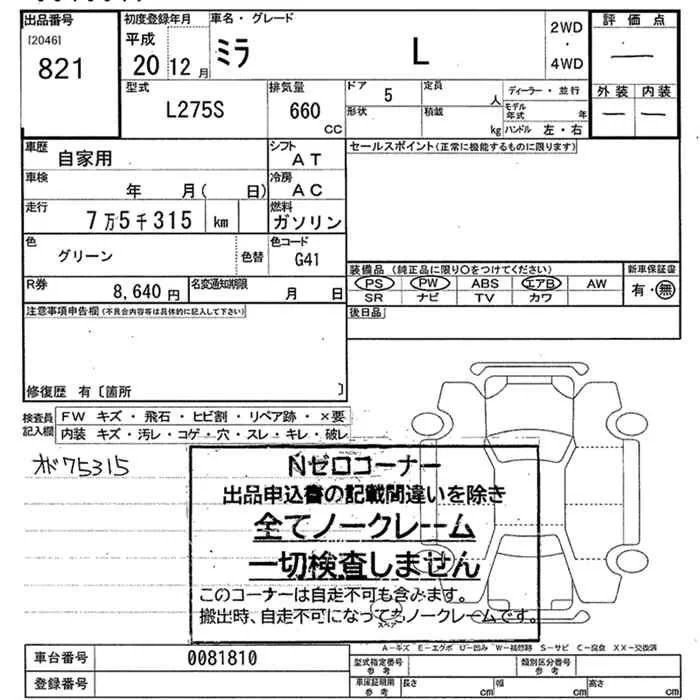 出品番号 初度登録年月 車名・グレード 2WD・4WD 評価点
[2046] 平成 ミラ L ―
821 20 12月 外装 内装
型式 排気量 ドア 定員 ディーラー・並行 ― ―
L275S 660 CC 5 人 モデル年式 年
形状 積載 kg ハンドル 左・右
車歴 自家用 シフト AT セールスポイント(正常に機能するものに限ります)
車検 年 月( 日) 冷房 AC
走行 7万5千315 km 燃料 ガソリン
色 グリーン 色替 色コード G41
装備品 (純正品に限り〇をつけてください) 新車保証書
PS PW ABS エアB AW 有・無
R券 8,640円 名変通知期限 月 日 SR ナビ TV カワ
注意事項申告欄(不具合内容等は具体的に記入して下さい) 後日品
修復歴 有〔箇所 〕
検査員記入欄 FW キズ・飛石・ヒビ割・リペア跡・×要
内装 キズ・汚レ・コゲ・穴・スレ・キレ・破レ
75315
Nゼロコーナー
出品申込書の記載間違いを除き
全てノークレーム
一切検査しません
このコーナーは自走不可も含みます。
搬出時、自走不可になってもノークレームです。
スペア
A-キズ E-エクボ U-凹み W-補修跡 S-サビ C-腐食 XX-交換済
車台番号 0081810 型式指定番号 参考 類別区分番号 参考
登録番号 車庫証明用 参考 長さ cm 幅 cm 高さ cm